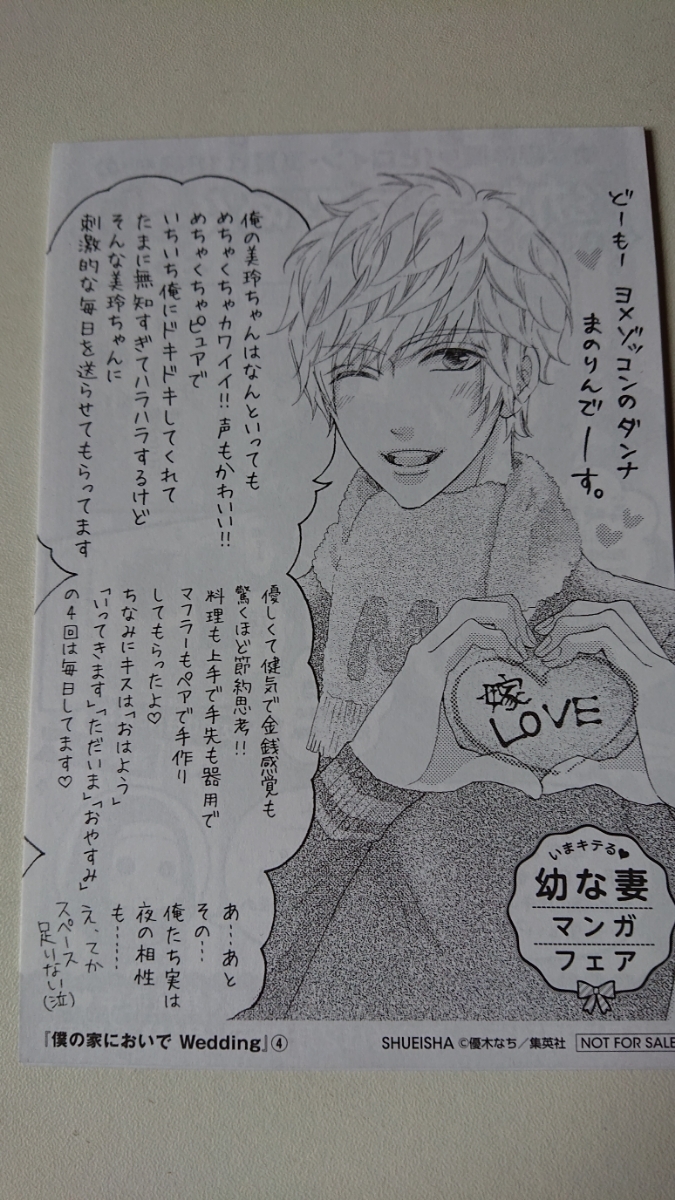 どーもー ヨメゾッコンのダンナ
まのりんでーす。
俺の美玲ちゃんはなんといっても
めちゃくちゃカワイイ!!声もかわいい!!
めちゃくちゃピュアで
いちいち俺にドキドキしてくれて
たまに無知すぎてハラハラするけど
そんな美玲ちゃんに
刺激的な毎日を送らせてもらってます
優しくて健気で金銭感覚も
驚くほど節約思考!!
料理も上手で手先も器用で
マフラーもペアで手作り
してもらったよ♡
ちなみにキスは「おはよう」
「いってきます」「ただいま」「おやすみ」
の4回は毎日してます♡
あ…あと
その…
俺たち実は
夜の相性
も……
え、てか
スペース
足りない(泣)
M
嫁
LOVE
いまキテる♥
幼な妻
マンガ
フェア
『僕の家においで Wedding』④
SHUEISHA ©優木なち/集英社
NOT FOR SALE